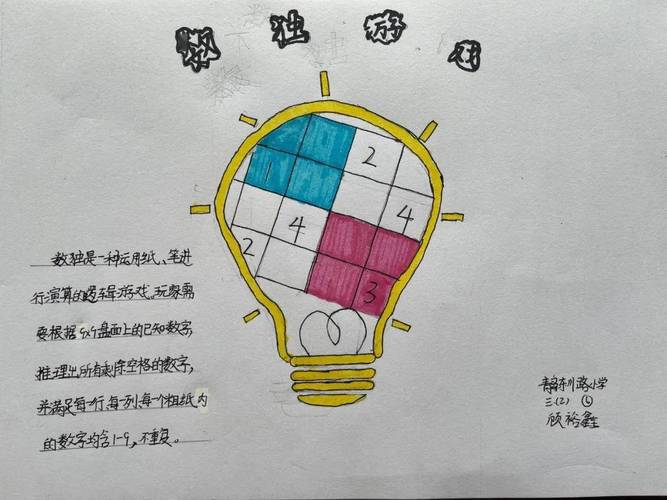 数独游戏
2
1
4
4
2
3
数独是一种运用纸、笔进
行演算的逻辑游戏。玩家需
要根据9×9盘面上的已知数字,
推理出所有剩除空格的数字,
并满足每一行、每一列、每一个粗纸内
的数字均含1-9,不重复。
路小学
三(2)
顾裕鑫